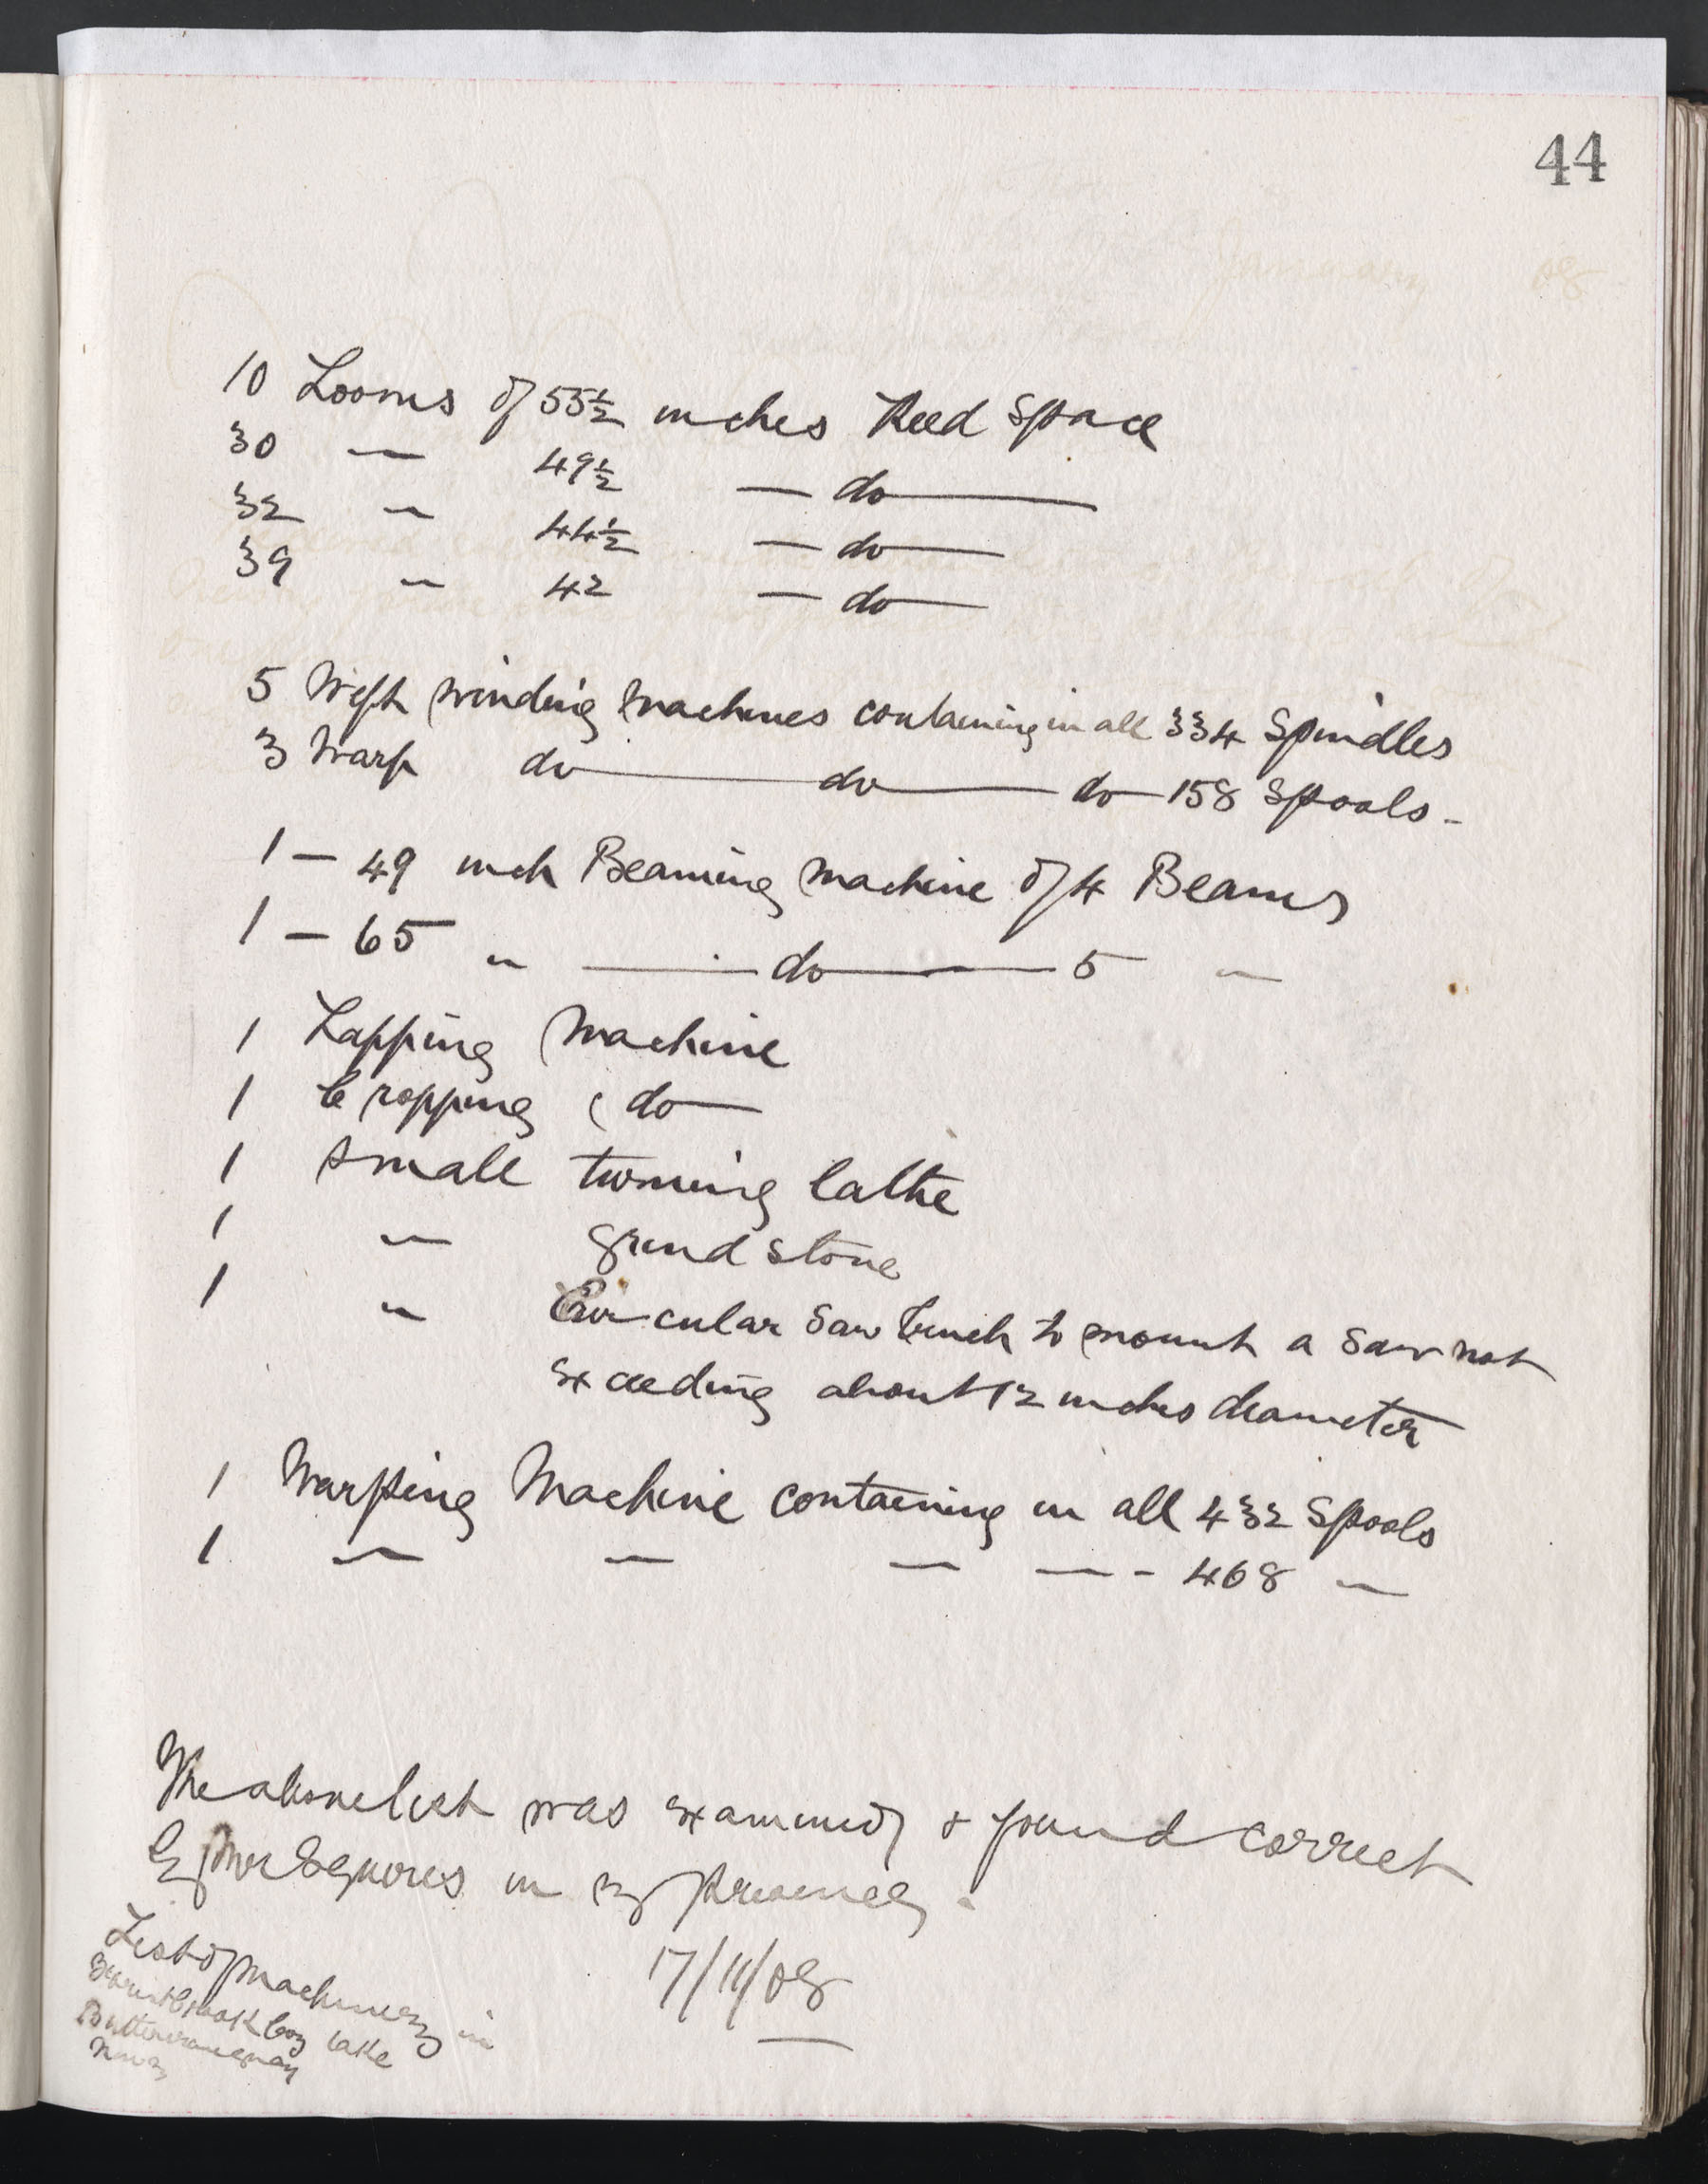 44
10 Looms of 55½ inches Reed Space
30 — 49½ — do —
32 " 44½ — do —
39 " 42 — do —
5 Weft winding Machines containing in all 334 Spindles
3 Warp do — do — do — 158 Spools -
1 — 49 inch Beaming Machine of 4 Beams
1 — 65 " — do — 5 "
1 Lapping Machine
1 Cropping do —
1 small turning lathe
1 " grind stone
1 " Circular Saw bench to mount a Saw not
exceeding about 12 inches diameter
1 Warping Machine containing in all 432 Spools
1 — — — — - 468 —
The above list was examined & found correct
by Mr Squires in my presence.
17/11/08
List of Machinery in
lake
Buttercrane quay
Newry